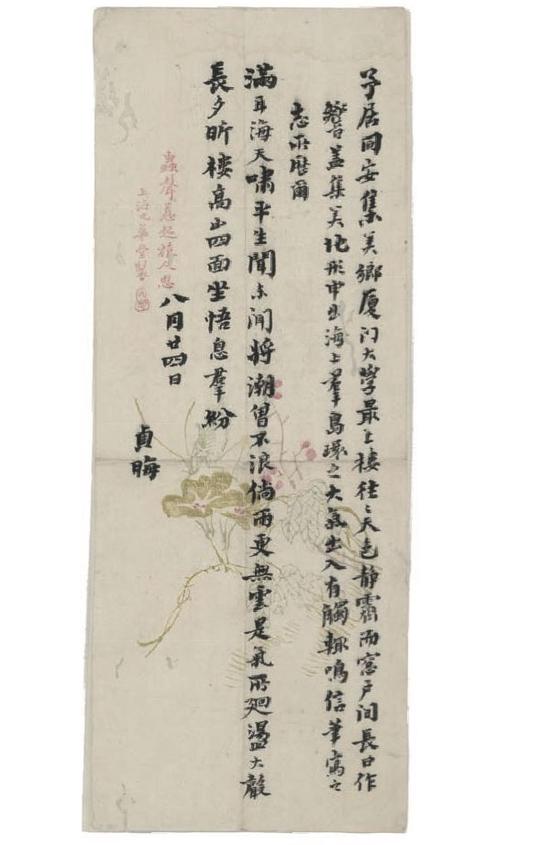 予居同安集美鄉厦门大學最上樓往〻天色靜霽而窓戶间長日作
響蓋集美地形中出海上羣島環之大氣出入有觸輒鳴信筆寫之
志所歷爾
滿耳海天嘯平生聞未闻將潮曾不浪倘雨更無雲是氣所廻盪大聲
長夕昕樓高山四面坐悟息羣紛
蟲聲
上海九華堂製
八月廿四日
貞晦